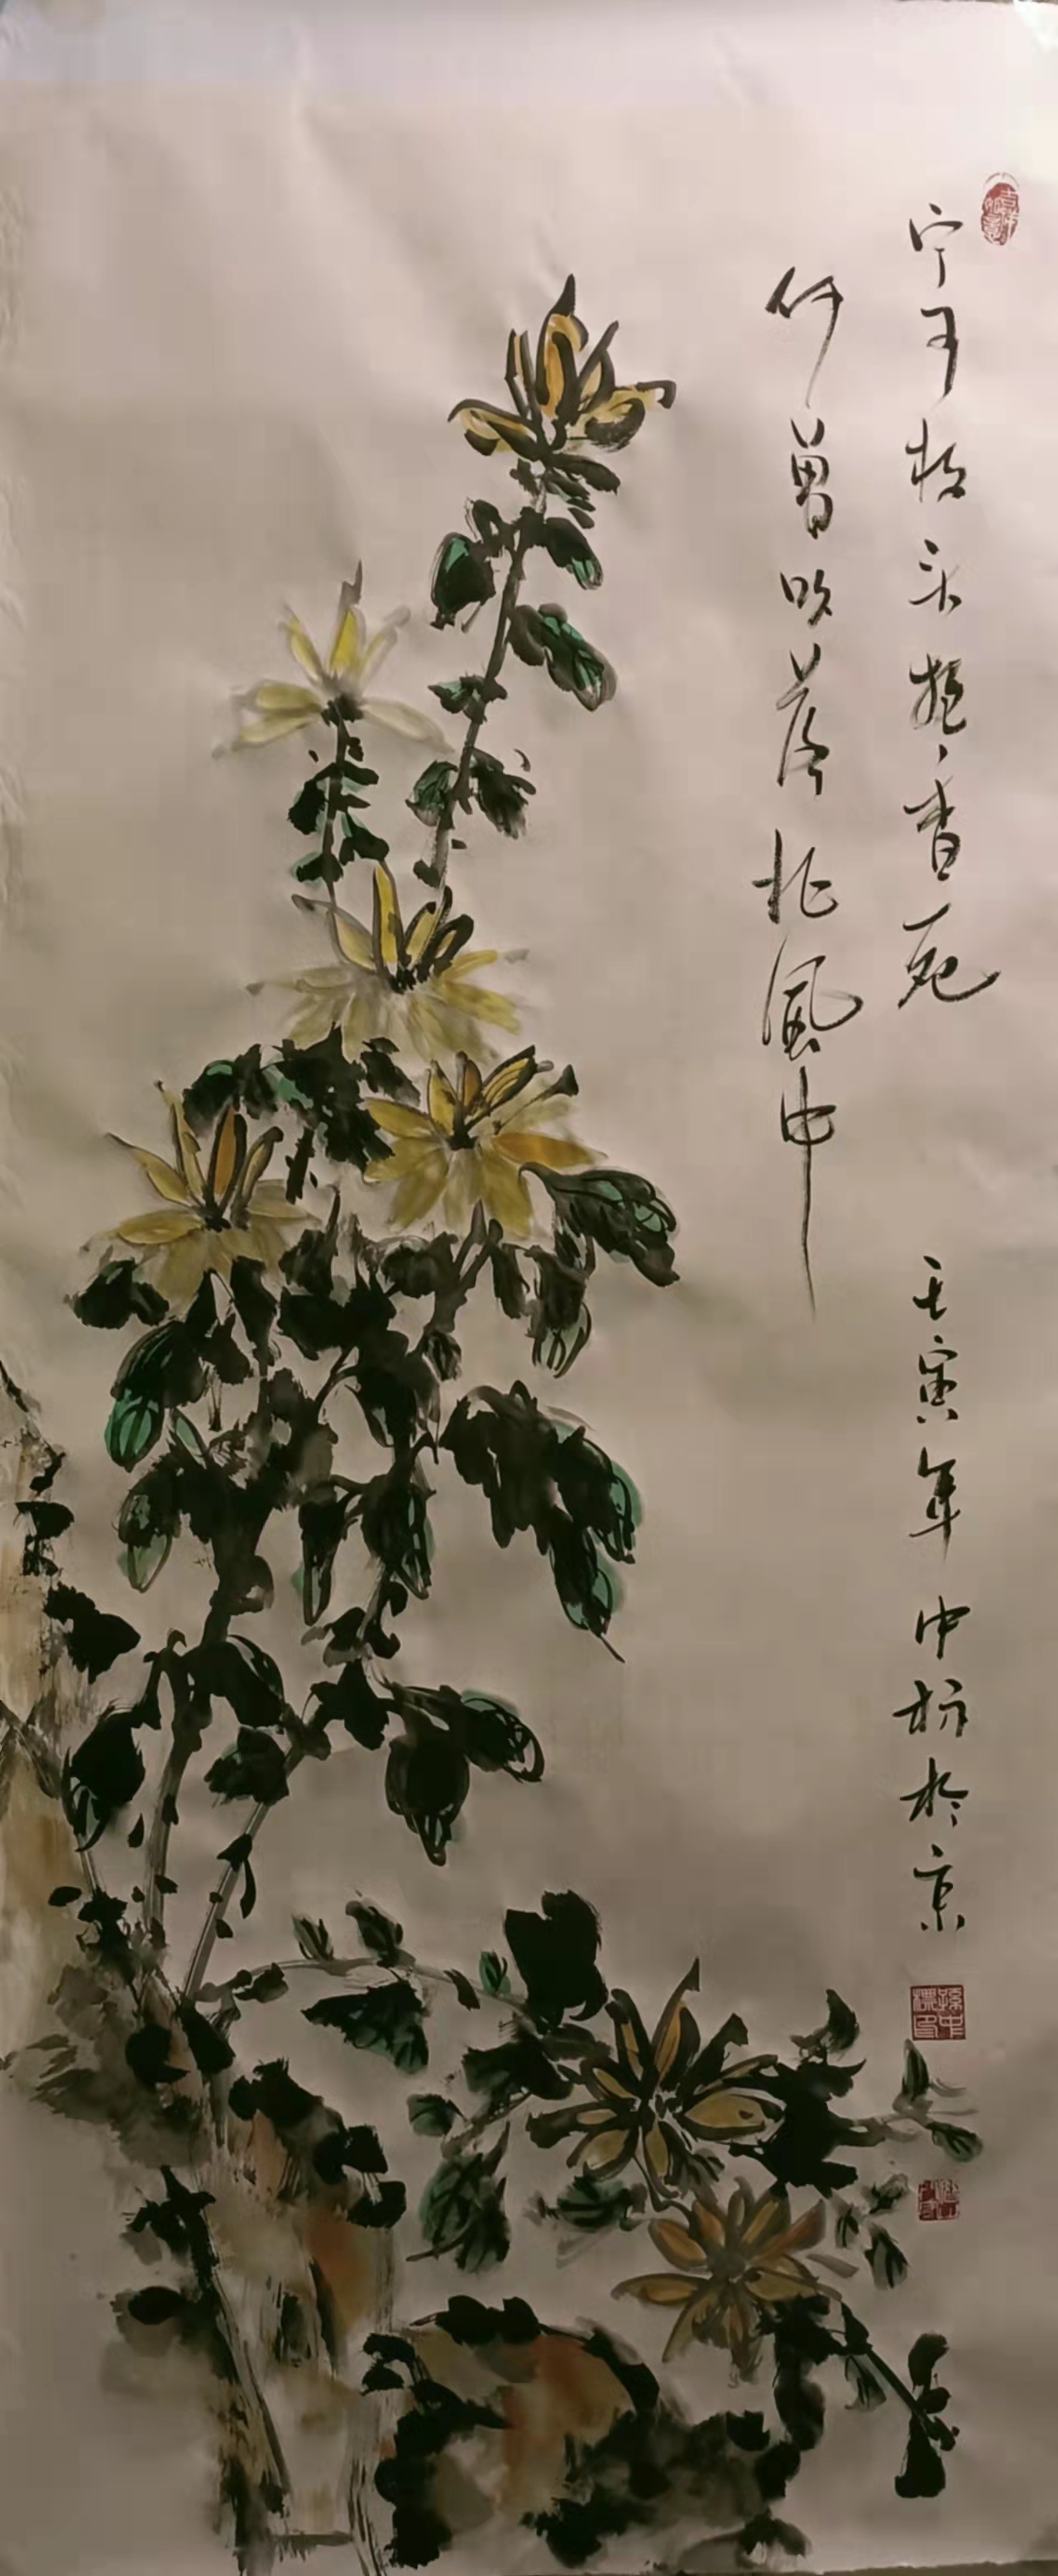 宁可枝头抱香死
何曾吹落北風中
壬寅年中标於京
孫中標印